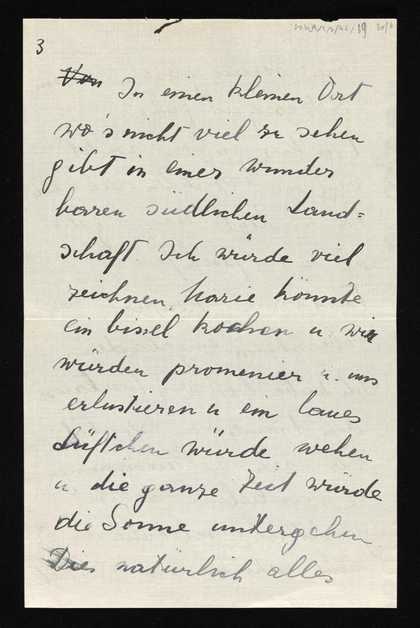 3
Von In einen kleinen Ort
wo's nicht viel zu sehen
gibt in einer wunder
baren südlichen Land=
schaft Ich würde viel
zeichnen, Marie könnte
ein bissel kochen u. wir
würden promenier u. uns
erlustieren u ein laues
Lüftchen würde wehen
u. die ganze Zeit würde
die Sonne untergehen
Dies natürlich alles